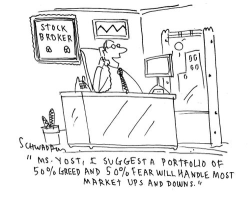 STOCK
BROKER
SCHWADRON
"MS. YOST, I SUGGEST A PORTFOLIO OF
50% GREED AND 50% FEAR WILL HANDLE MOST
MARKET UPS AND DOWNS."